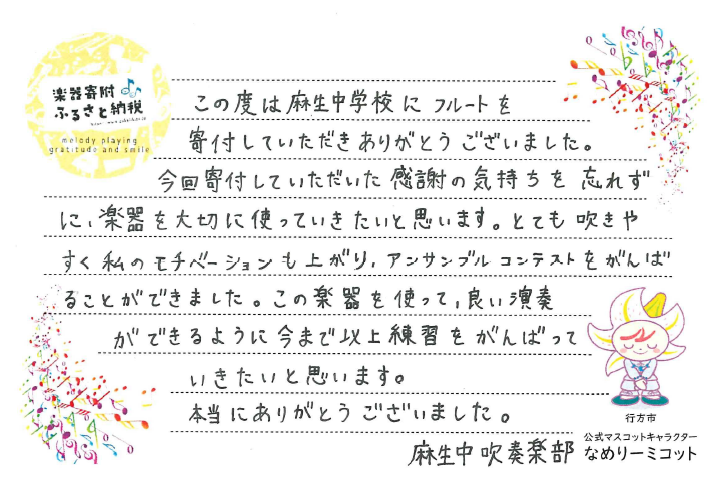 楽器寄附
ふるさと納税
melody playing
gratitude and smile
この度は麻生中学校にフルートを
寄付していただきありがとうございました。
今回寄付していただいた感謝の気持ちを忘れず
に、楽器を大切に使っていきたいと思います。とても吹きや
すく私のモチベーションも上がり、アンサンブルコンテストをがんば
ることができました。この楽器を使って、良い演奏
ができるように今まで以上練習をがんばって
いきたいと思います。
本当にありがとうございました。
麻生中吹奏楽部
行方市
公式マスコットキャラクター
なめりーミコット